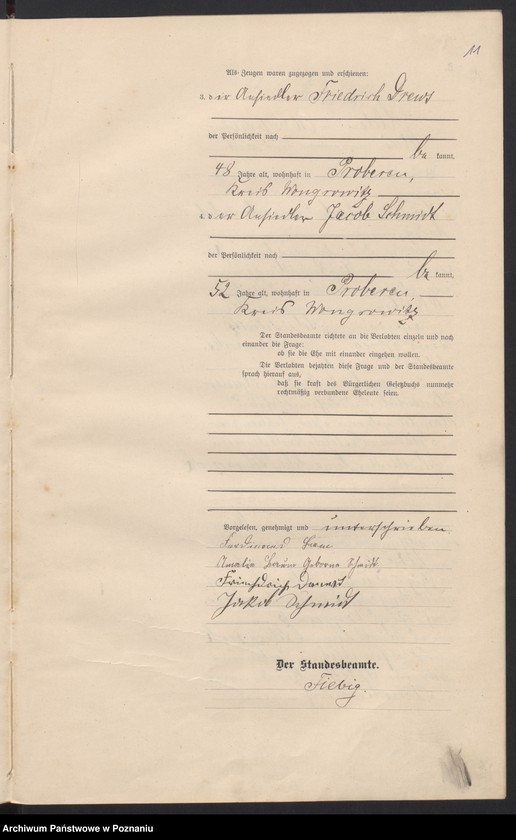 11
Als Zeugen waren zugezogen und erschienen:
3. der Ansiedler Friedrich Drews
der Persönlichkeit nach
be kannt,
48 Jahre alt, wohnhaft in Proberen,
Kreis Wongrowitz
4. der Ansiedler Jacob Schmidt
der Persönlichkeit nach
be kannt,
52 Jahre alt, wohnhaft in Proberen,
Kreis Wongrowitz
Der Standesbeamte richtete an die Verlobten einzeln und nach
einander die Frage:
ob sie die Ehe mit einander eingehen wollen.
Die Verlobten bejahten diese Frage und der Standesbeamte
sprach hierauf aus,
daß sie kraft des Bürgerlichen Gesetzbuchs nunmehr
rechtmäßig verbundene Eheleute seien.
Vorgelesen, genehmigt und unterschrieben
Ferdinand
Amalie Geborne Schmidt
Jakob Schmidt
Der Standesbeamte.
Fiebig.
Archiwum Państwowe w Poznaniu